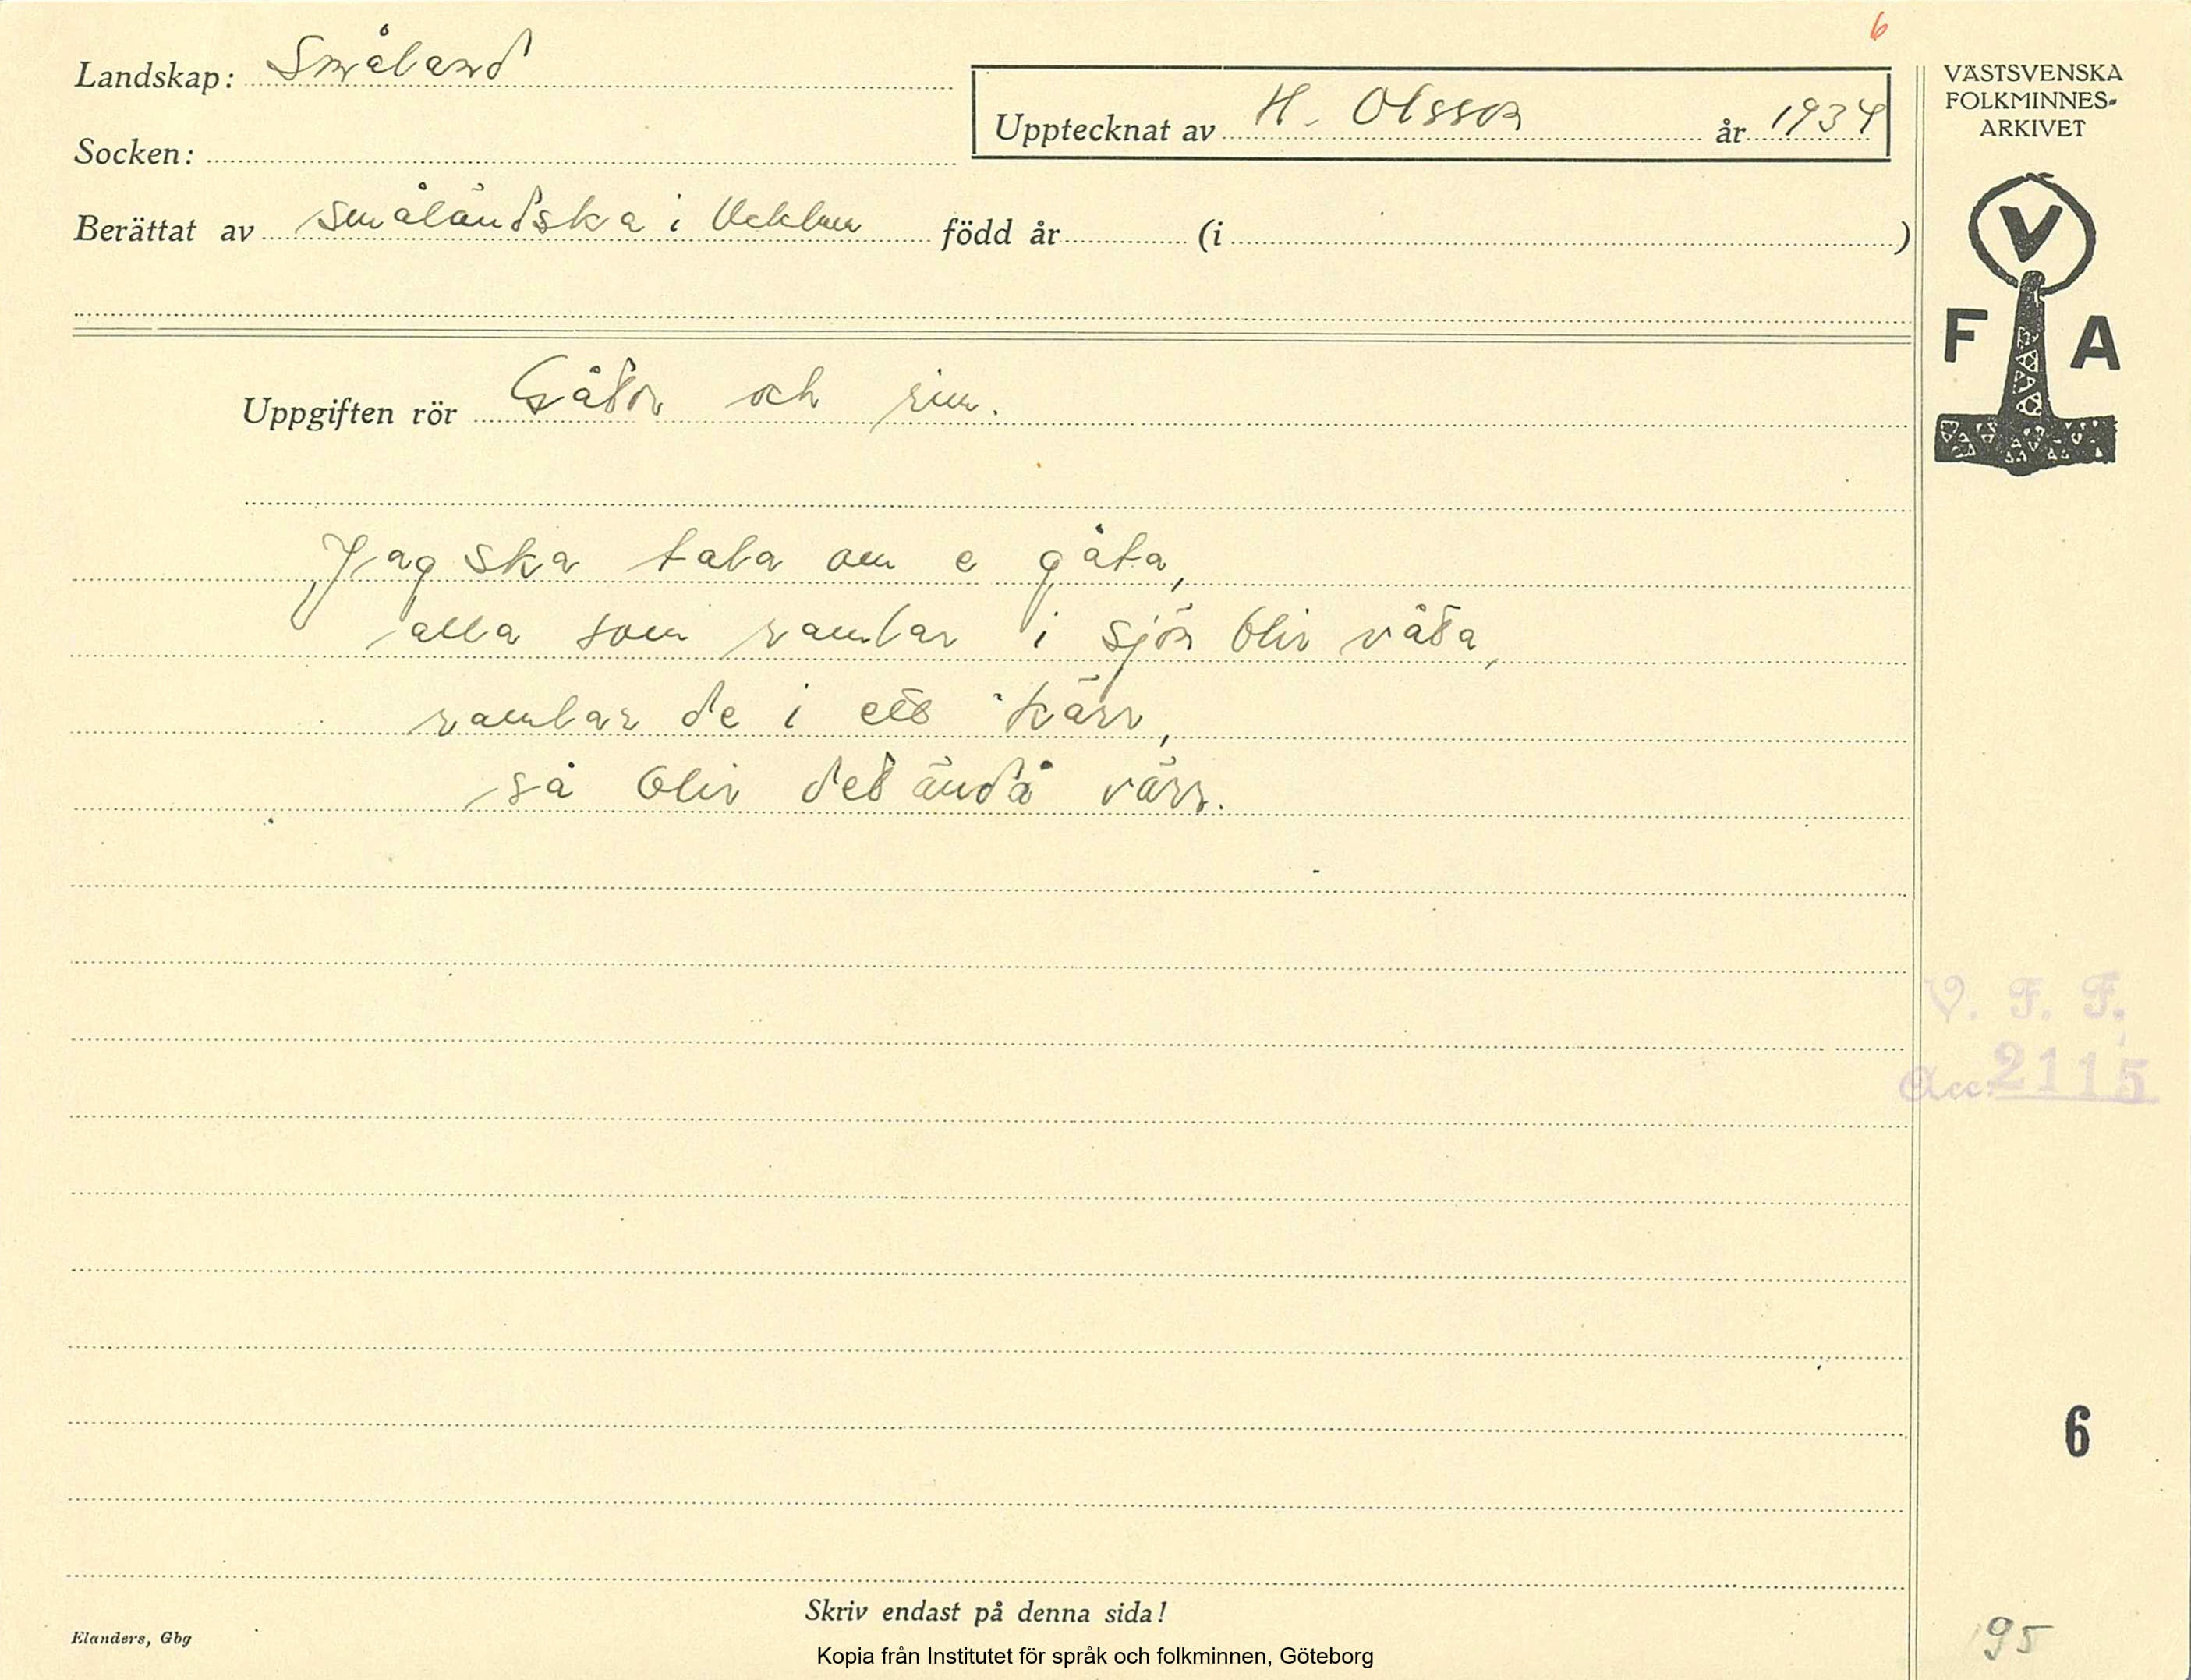 6
Landskap: Småland
Upptecknat av H. Olsson år 1934
Socken:
Berättat av småländska i född år (i )
Uppgiften rör Gåtor och rim.
Jag ska tala om e gåta,
alla som ramlar i sjön blir våta,
ramlar de i ett kärr,
så blir det ändå värr.
VÄSTSVENSKA
FOLKMINNES-
ARKIVET
V
F A
V. F. F.
Acc. 2115
6
195
Skriv endast på denna sida!
Elanders, Gbg
Kopia från Institutet för språk och folkminnen, Göteborg